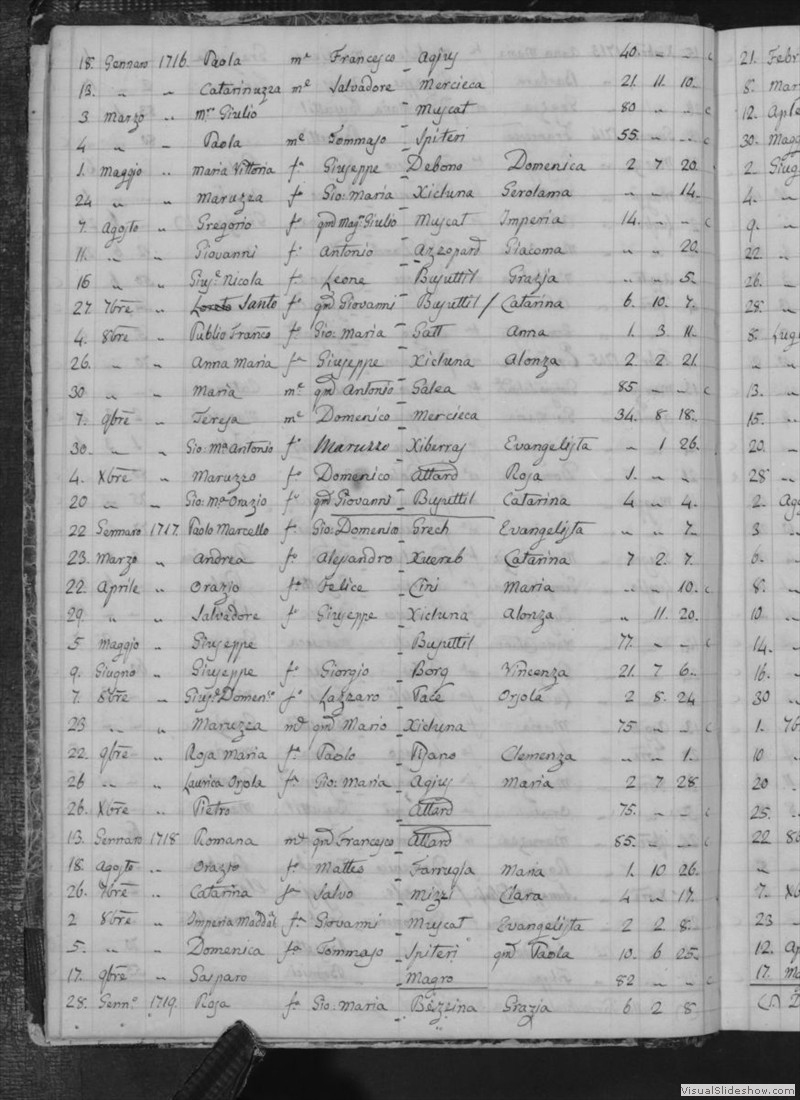 18. Gennaro 1716. Paola mᵉ Francesco Agius 40. „ „ c
13. „ „ Catarinuzza mᵉ Salvadore Mercieca 21. 11. 10.
3 Marzo „ mʳ Giulio Muscat 80 „ „ c
4 „ „ Paola mᵉ Tommaso Spiteri 55. „ „ c
1. Maggio „ Maria Vittoria fᵃ Giuseppe Debono Domenica 2 7 20.
24 „ „ Maruzza fᵃ Gio: Maria Xicluna Gerolama „ „ 14.
7. Agosto „ Gregorio fᵒ qm̃ Magᶜᵒ Giulio Muscat Imperia 14. „ „ c
11. „ „ Giovanni fᵒ Antonio Azzopard Giacoma „ „ 20.
16 „ „ Giusᵉ Nicola fᵒ Leone Busuttil Grazia „ „ 5.
27. 7bre „ Santo fᵒ qm̃ Giovanni Busuttil / Catarina 6. 10. 7.
4. 8bre „ Publio Franco fᵒ Gio: Maria Gatt Anna 1. 3 11.
26. „ „ Anna Maria fᵃ Giuseppe Xicluna Alonza 2 2 21.
30 „ „ Maria mᵉ qm̃ Antonio Galea 85 „ „ c
7. 9bre „ Teresa mᵉ Domenico Mercieca 34. 8 18.
30. „ „ Gio: Mᵃ Antonio fᵒ Maruzzo Xiberras Evangelista „ 1 26.
4. Xbre „ Maruzzo fᵒ Domenico Attard Rosa 1. „ „
20 „ „ Gio: Mᵃ Orazio fᵒ qm̃ Giovanni Busuttil Catarina 4 „ 4.
22 Gennaro 1717. Paolo Marcello fᵒ Gio: Domenico Grech Evangelista „ „ 7.
23. Marzo „ Andrea fᵒ Alesandro Xuereb Catarina 7 2. 7.
22. Aprile „ Orazio fᵒ Felice Cini Maria „ „ 10. c
29. „ „ Salvadore fᵒ Giuseppe Xicluna Alonza „ 11. 20.
5 Maggio „ Giuseppe Busuttil 77. „ „ c
9. Giugno „ Giuseppe fᵒ Giorgio Borg Vincenza 21. 7 6.
7. 8bre „ Giusᵉ Domenᶜᵒ fᵒ Lazzaro Pace Orsola 2 8. 24
23 „ „ Maruzza mᵉ qm̃ Mario Xicluna 75 „ „ c
22. 9bre „ Rosa Maria fᵃ Paolo Pisano Clemenza „ „ 1.
26 „ „ Laurica Orsola fᵃ Gio: Maria Agius Maria 2 7 28.
26. Xbre „ Pietro Attard 75. „ „ c
13. Gennaro 1718. Romana mᵉ qm̃ Francesco Attard 85. „ „ c
18. Agosto „ Orazio fᵒ Matteo Farrugia Maria 1. 10 26.
26. 7bre „ Catarina fᵃ Salvo Mizzi Clara 4 „ 17.
2 8bre „ Imperia Maddal fᵃ Giovanni Muscat Evangelista 2 2 8.
5. „ „ Domenica fᵃ Tommaso Spiteri qm̃ Paola 10. 6 25.
17. 9bre „ Gasparo Magro 82 „ „ c
28. Gennᵒ 1719. Rosa fᵃ Gio: Maria Bezzina Grazia 6 2 8.
21. Febr
8. Mar
12. Aple
30. Magg
2. Giug
4. „
9. „
22. „
26. „
28. „
8. Lugl
„ „
13. „
15. „
20. „
28 „
2. Ago
3 „
6. „
8. „
10 „
14. „
16. „
30 „
1. 7b
10 „
20 „
25. „
22 8b
„ „
7. Xb
23 „
12. Ap
17. Ma
VisualSlideshow.com